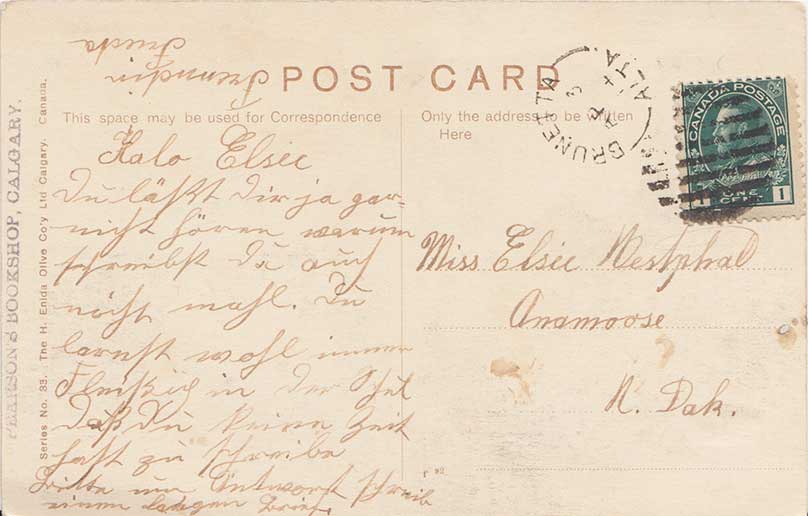 POST CARD
This space may be used for Correspondence
Only the address to be written
Here
Halo Elsie
Du läßt Dir ja gar-
nicht hören warum
schreibst Du auch
nicht mahl. Du
larnst wohl immer
Fleißig in der Schul
daß Du keine Zeit
hast zu schreibe
Bitte um Antwort schreib
einen langen Brief
Freundin
BRUNETTA ALTA
CANADA POSTAGE
1 ONE CENT 1
Miss Elsie Westphal
Anamoose
N. Dak.
Series No. 33. The H. Enida Olive Co'y Ltd Calgary. Canada.
PEARSON'S BOOKSHOP, CALGARY.